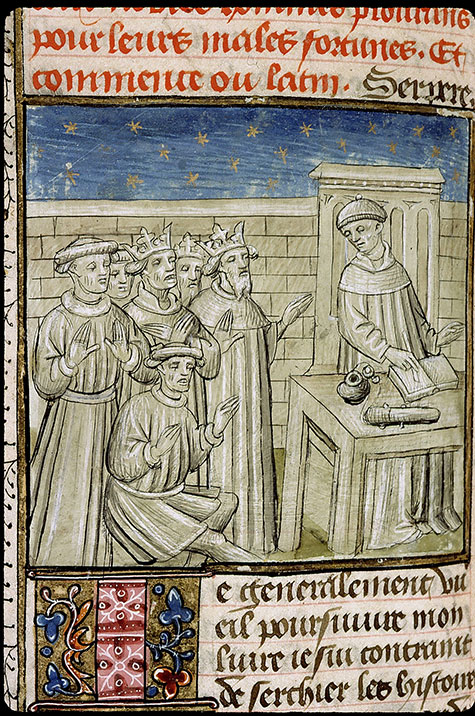 nobles hommes plourans
pour leurs males fortunes. Et
commence ou latin. Serere
e generalement vu
eil poursuiure mon
liure ie sui contraint
de serchier les histoire